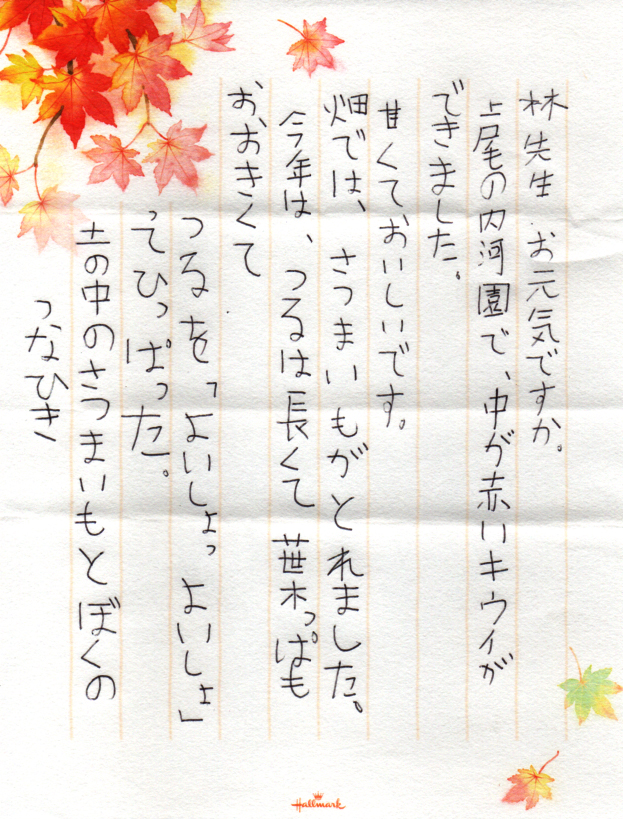 林先生 お元気ですか。
上尾の内河園で、中が赤いキウイが
できました。
甘くておいしいです。
畑では、さつまいもがとれました。
今年は、つるは長くて葉っぱも
おおきくて
つるを「よいしょっ よいしょ」
ってひっぱった。
土の中のさつまいもとぼくの
つなひき
Hallmark